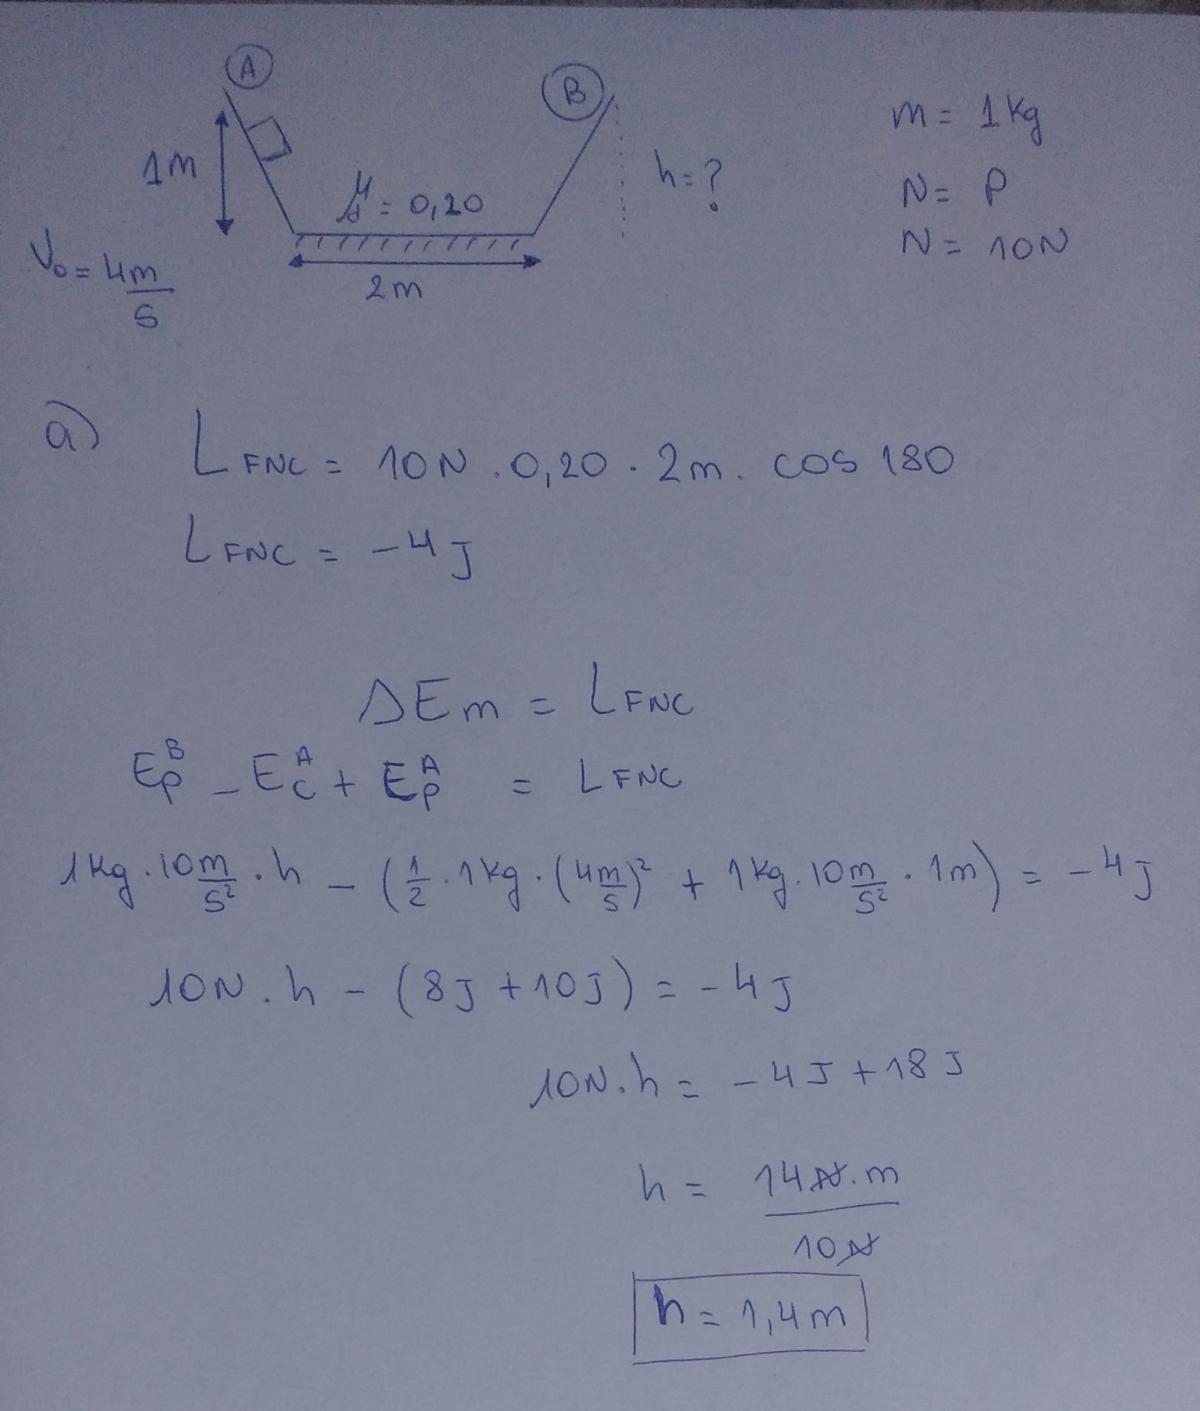 A
B
m = 1Kg
1m
h=?
N= P
μd = 0,20
N= 10N
V₀ = 4m/s
2m
a)
L FNC = 10N . 0,20 . 2m. cos 180
L FNC = -4J
ΔEm = LFNC
Ep^B - Ec^A + Ep^A = LFNC
1Kg.10m/s² . h - (1/2 .1Kg.(4m/s)² + 1Kg.10m/s² . 1m) = -4J
10N . h - (8J +10J) = -4J
10N.h = -4J +18J
h = 14N.m/10N
h = 1,4m